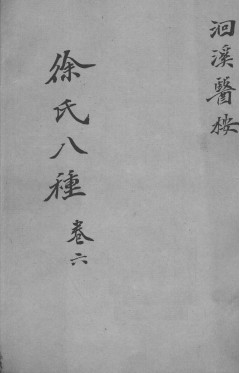 洄溪醫桉
徐氏八種 卷六